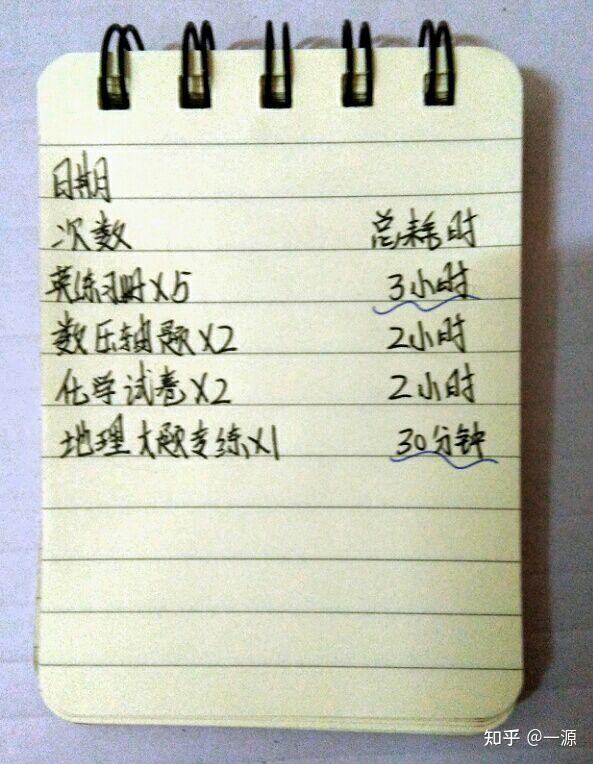 日期
次数 总耗时
英练习册×5 3小时
数压轴题×2 2小时
化学试卷×2 2小时
地理大题专练×1 30分钟
知乎 @一源